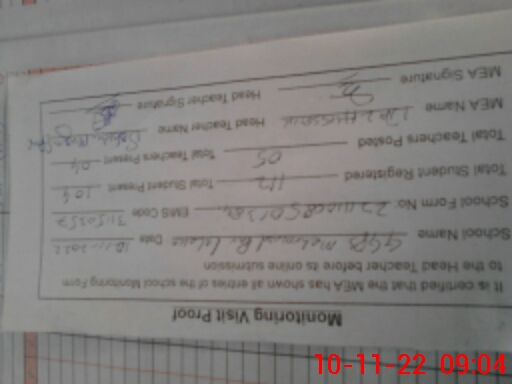 Monitoring Visit Proof
It is certified that the MEA has shown all entries of the school Monitoring Form
to the Head Teacher before its online submission
School Name GGPS Date 10.11.2022
School Form No. EMIS Code 31150257
Total Student Registered 112 Total Student Present 104
Total Teachers Posted 05 Total Teachers Present 04
MEA Name Head Teacher Name
MEA Signature Head Teacher Signature
10-11-22 09:04